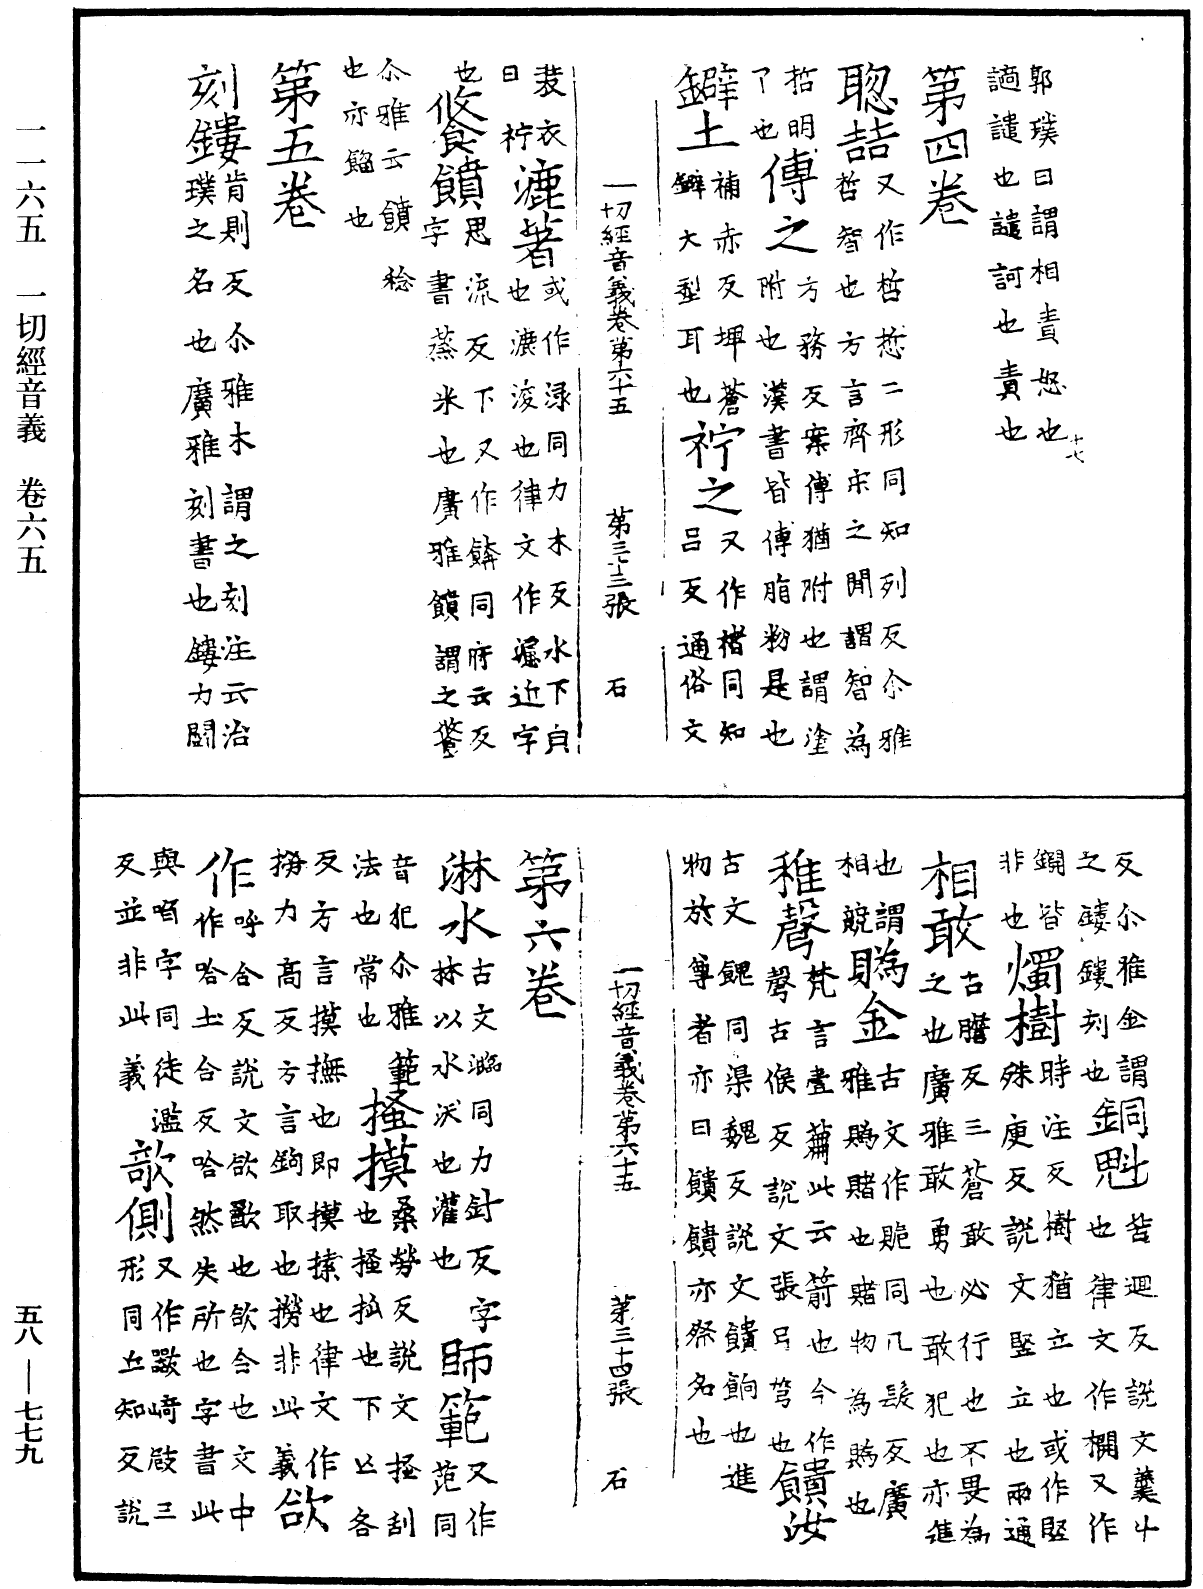 一一六五　一切經音義　卷六五
郭璞曰謂相責怒也
十七
謫譴也譴訶也責也
第四卷
聰喆
又作哲悊二形同知列反尒雅
哲智也方言齊宋之間謂智為
哲明
了也
傅之
方務反案傅猶附也謂塗
附也漢書皆傅脂粉是也
鐴土
補赤反埤蒼
鐴大犁耳也
䘢之
又作褚同知
呂反通俗文
一切經音義卷第六十五　第三十三張　石
裝衣
曰䘢
漉著
或作淥同力木反水下皃
也漉浚也律文作𣽽近字
也
餐饙
思流反下又作餴同府云反
字書蒸米也廣雅饙謂之餐
尒雅云饙稔
也亦餾也
第五卷
刻鏤
肯則反尒雅木謂之刻注云治
璞之名也廣雅刻書也鏤力鬪
反尒雅金謂
之鏤鏤刻也
銅魁
苦迴反說文羹斗
也律文作櫚又作
鐦皆
非也
燭樹
時注反樹猶立也或作竪
殊庾反說文竪立也兩通
相敢
古膽反三蒼敢必行也不畏為
之也廣雅敢勇也敢犯也亦進
也謂
相競
賜金
古文作賜同几髮反廣
雅賜賭也賭物為賜也
稚磬
梵言壹蕭此云箭也今作
磬古候反說文張弓弩也
饋汝
古文餽同渠魏反說文饋餉也進
物於尊者亦曰饋饋亦祭名也
一切經音義卷第六十五　第三十四張　石
第六卷
淋水
古文𤂖同力針反字
林以水沃也灌也
師範
又作
范同
音犯尒雅範
法也常也
搔摸
桑勞反說文搔刮
也搔抓也下亡各
反方言摸撫也即摸揉也律文作
撈力高反方言鉤取也撈非此義
欱作
呼合反說文欲歠也欱合也文中
作哈土合反哈然失所也字書此
與㗖字同徒濫
反並非此義
㰟側
又作㩻崎攲三
形同丘知反說
五八—七七九